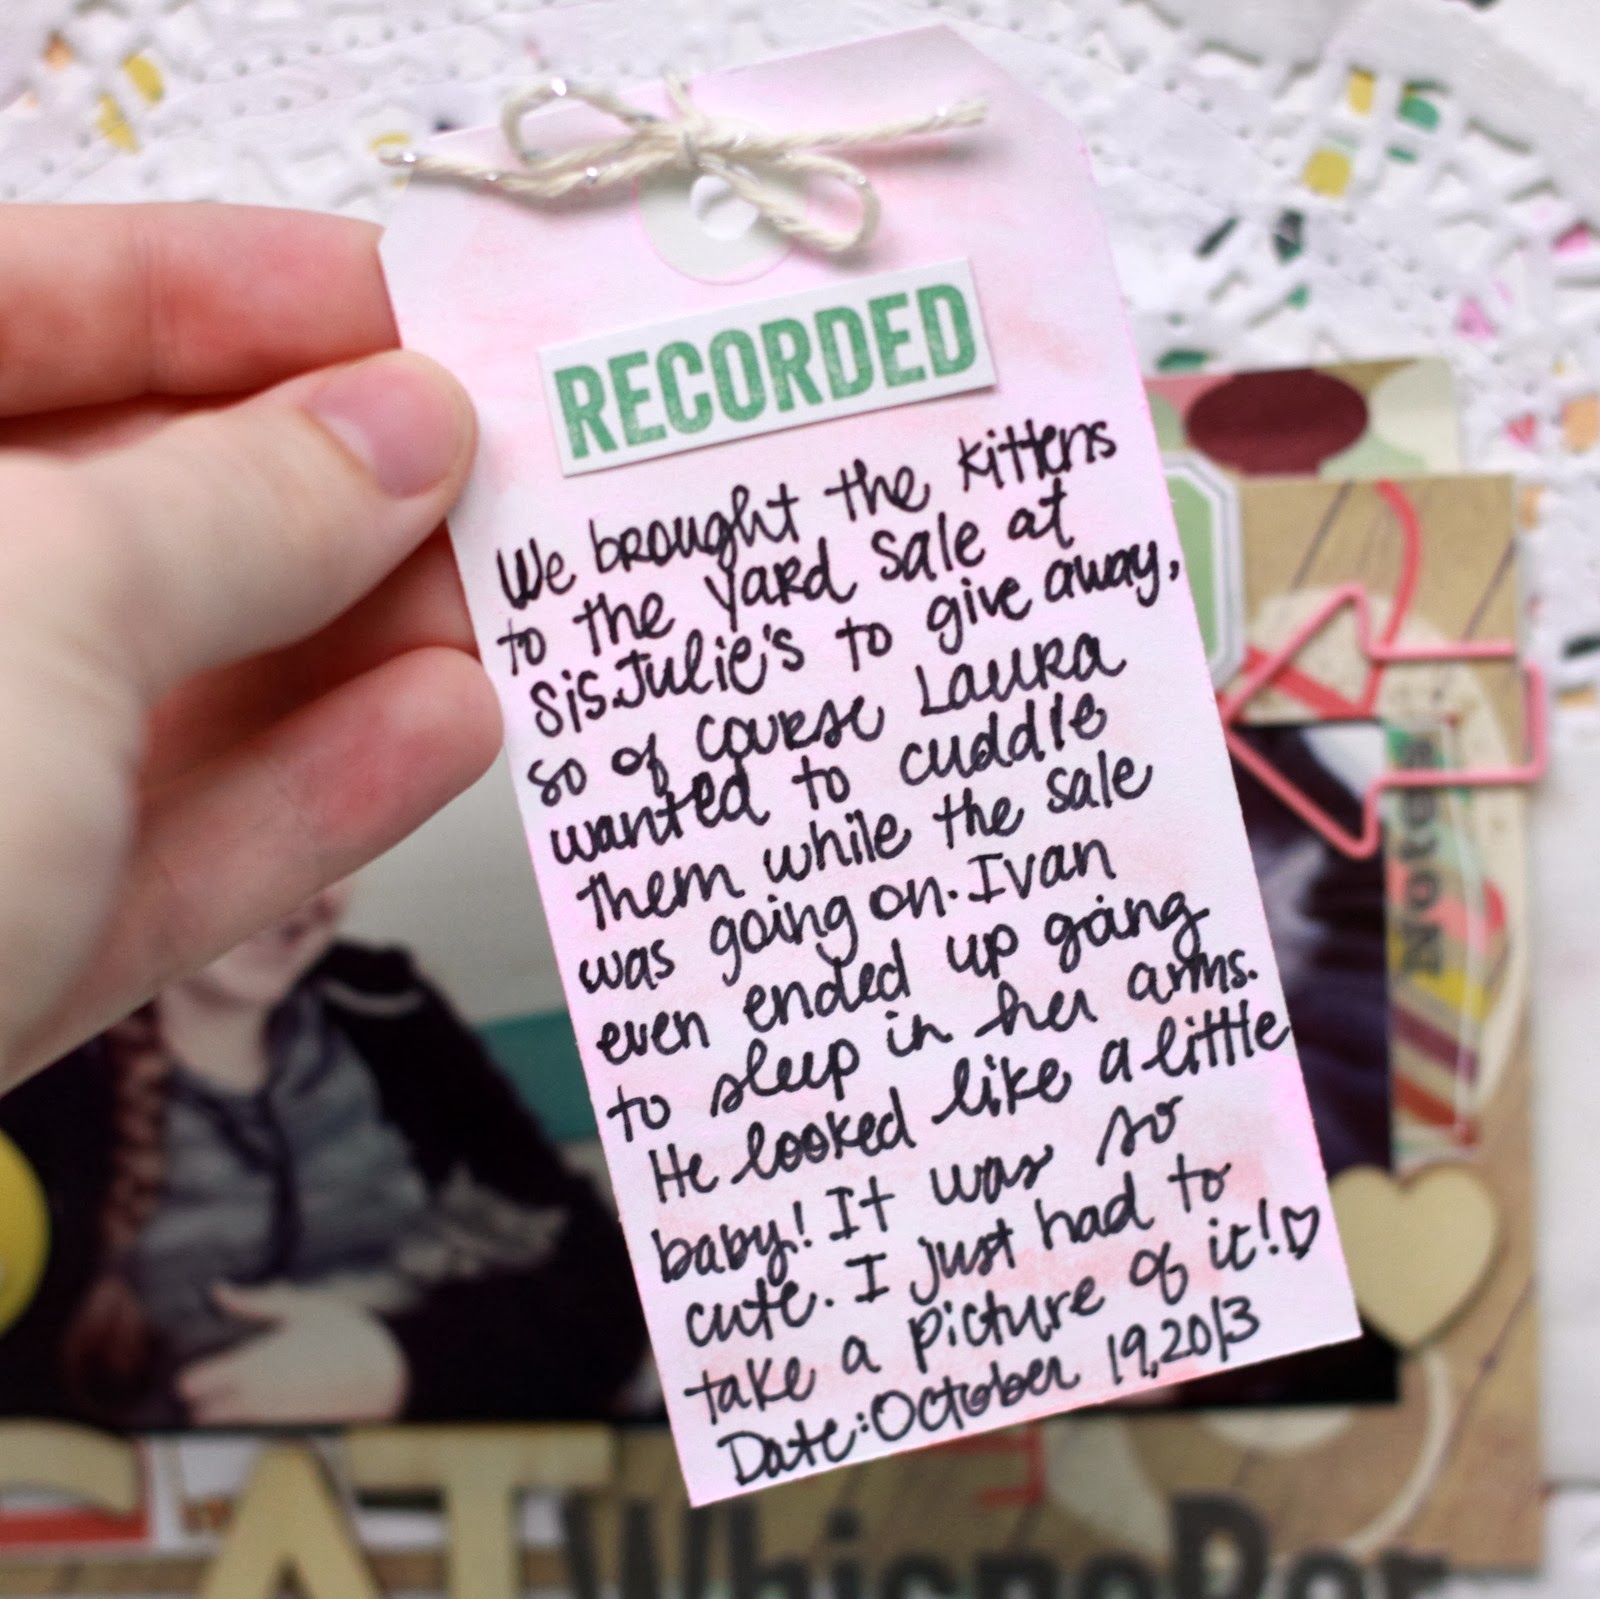 RECORDED
We brought the kittens
to the yard sale at
Sis. Julie's to give away,
so of course Laura
wanted to cuddle
them while the sale
was going on. Ivan
even ended up going
to sleep in her arms.
He looked like a little
baby! It was so
cute. I just had to
take a picture of it! ♡
Date: October 19, 2013
Notes
CAT
WhispeRer